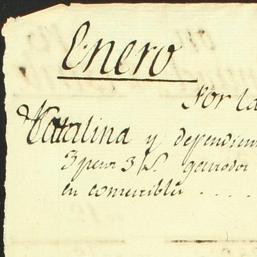 Enero
Por la
Cattalina y dependien
3 pesos 3/L. gastados
en comestibles . . . .